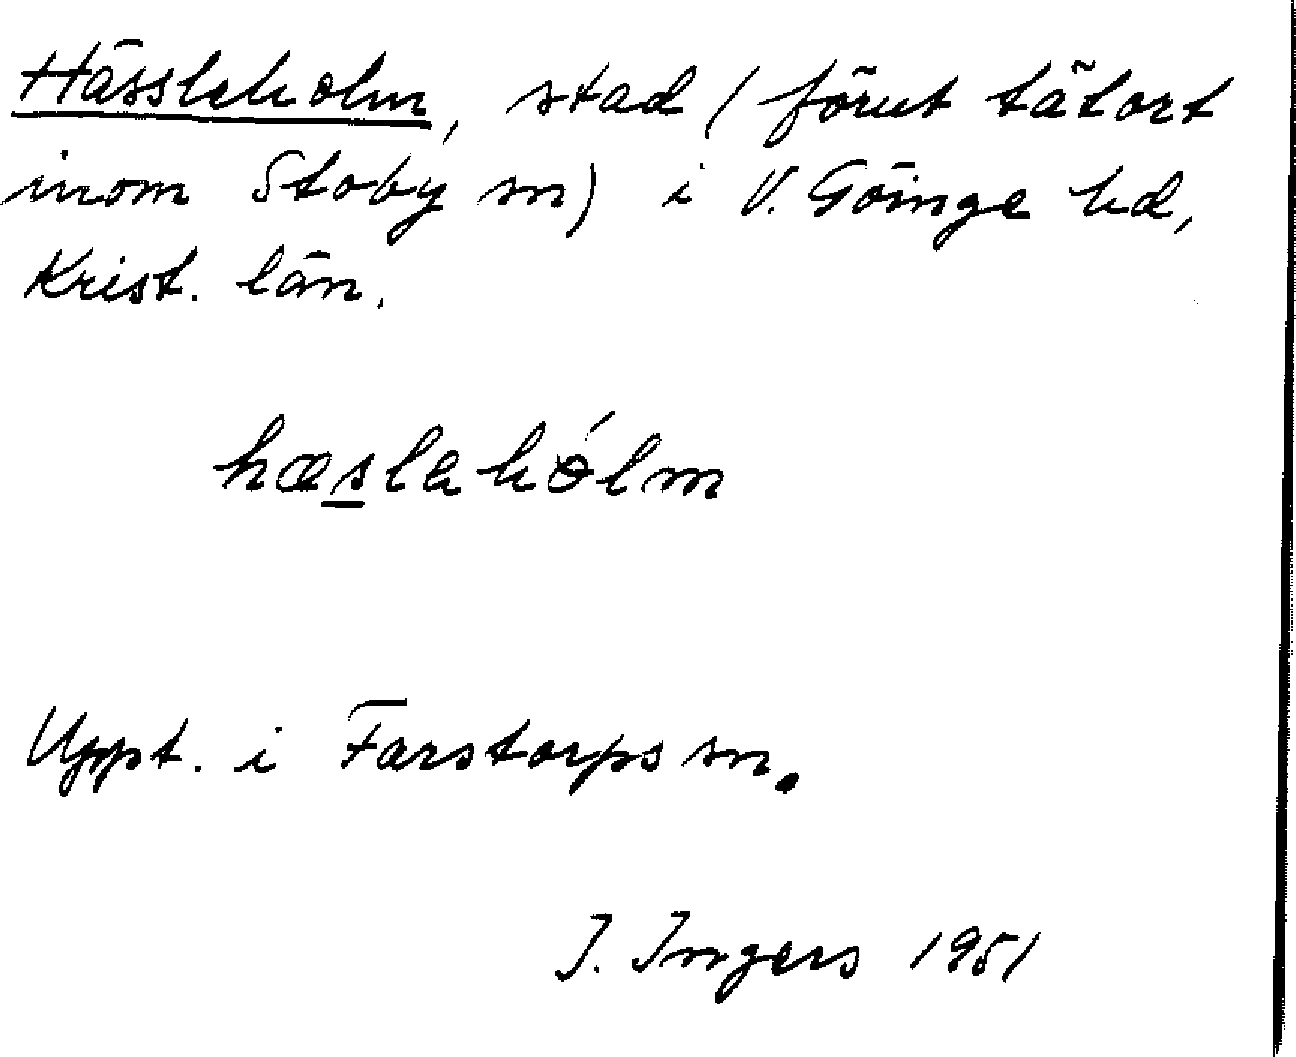 Hässleholm, stad (förut tätort
inom Stoby sn) i V. Göinge hd,
Krist. län.
hæslahólm
Uppt. i Farstorps sn.
I. Ingers 1951